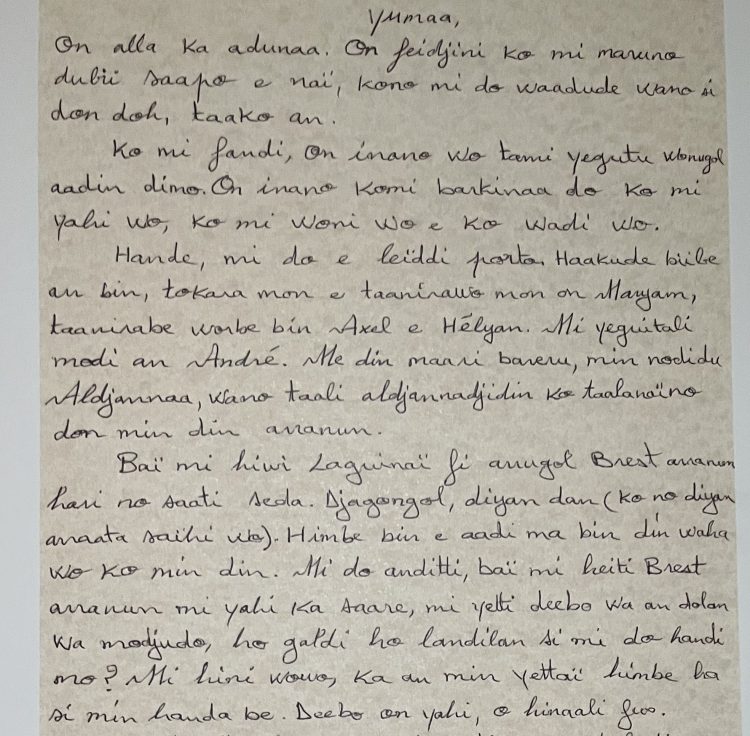 Yumaa,
On alla ka adunaa. On feidjini ko mi maruno
dubii saapo e naï, kono mi do waadude wano si
don doh, taako an.
Ko mi fandi, on inano wo tami yegutu wonugol
aadin dimo. On inano komi barkinaa do ko mi
yahi wo, ko mi woni wo e ko wadi wo.
Hande, mi do e leïddi porto. Haakude biibe
an bin, tokara mon e taanirawo mon on Maryam,
taanirabe worbe bin Axel e Hélyan. Mi yeguitali
modi an André. Me din maari baveru, min nodidu
Aldjannaa, wano taali aldjannadjidin ko taalanaïno
don min din ananun.
Baï mi hiwi Laguinaï fi arugol Brest ananun
hari no saati seda. Djagongol, diyan dan (ko no diyan
anaata saihi wo). Himbe bin e aadi ma bin din waha
wo ko min din. Mi do anditti, baï mi heiti Brest
ananun mi yahi ka saare, mi yetti deebo wa an dolan
wa modjudo, ho galdi ho landilan si mi do handi
mo? Mi hini wowo, ka an min yettaï himbe ba
si min handa be. Deebo on yahi, o hinaali fus.